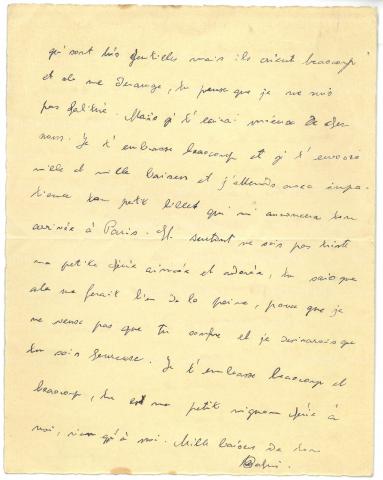 qui sont très gentilles mais ils crient beaucoup
et ala me derange, tu penses que je ne suis
pas Mais gi t'
Je t'embrasse beaucoup et gi t'envoie
mille et mille baisers et j'attends avec impa-
tience ton petit billet qui m'annoncera ton
arrivée à Paris. Et surtout ne sois pas triste
ma petite aimée et adorée, tu sais que
ala me ferait bien de la peine, parce que je
ne veux pas que tu et je que
tu sois heureuse. Je t'embrasse beaucoup et
beaucoup, tu es ma petite mignonne à
moi, rien qu'à moi. Mille baisers de ton